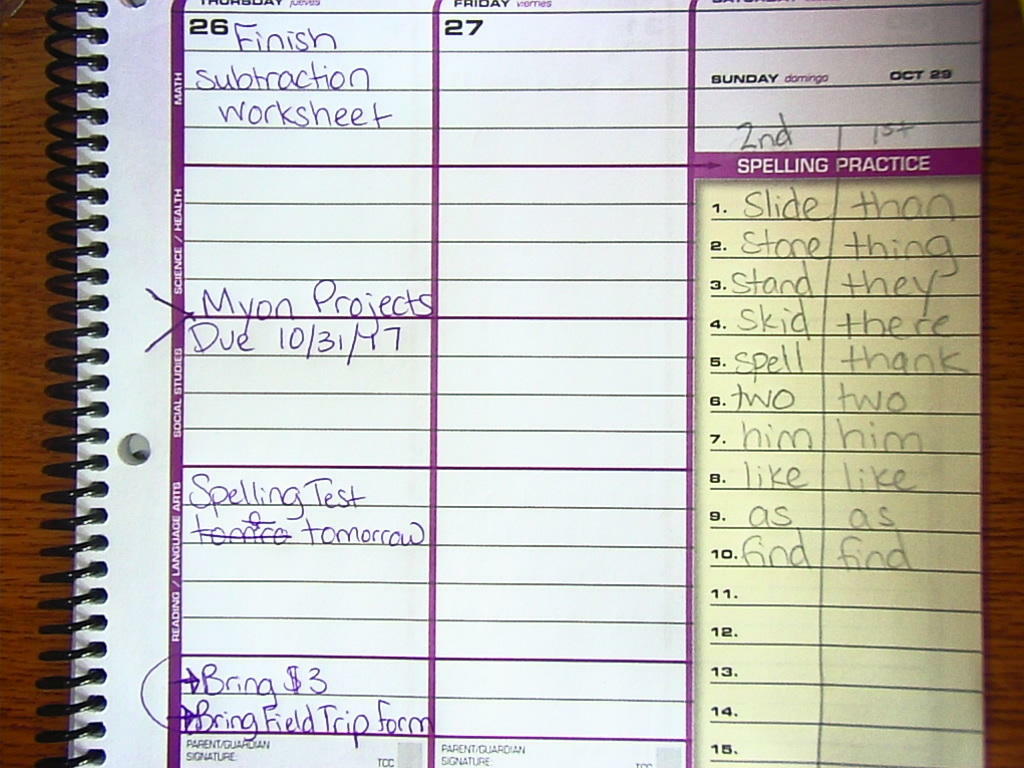 THURSDAY jueves
26 Finish
subtraction
worksheet
MATH
SCIENCE / HEALTH
Myon Projects
Due 10/31/17
SOCIAL STUDIES
Spelling Test
tomorrow
READING / LANGUAGE ARTS
Bring $3
Bring Field Trip form
PARENT/GUARDIAN
SIGNATURE:
TCC
FRIDAY viernes
27
PARENT/GUARDIAN
SIGNATURE:
TCC
SATURDAY
SUNDAY domingo OCT 29
2nd 1st
SPELLING PRACTICE
1. Slide than
2. Stone thing
3. Stand they
4. Skid there
5. spell thank
6. two two
7. him him
8. like like
9. as as
10. find find
11.
12.
13.
14.
15.